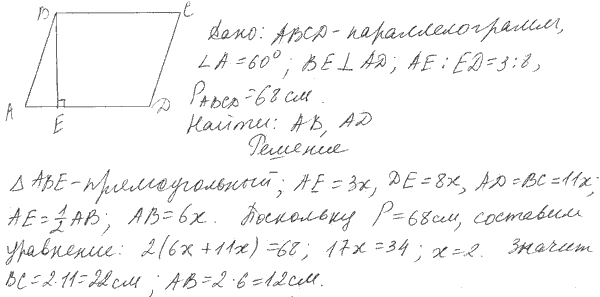 B C
A E D
Дано: ABCD-параллелограмм,
∠A=60°; BE⊥AD; AE:ED=3:8,
P_ABCD=68см.
Найти: AB, AD
Решение
△ABE-прямоугольный; AE=3x, DE=8x, AD=BC=11x;
AE=½AB; AB=6x. Поскольку P=68см, составим
уравнение: 2(6x+11x)=68; 17x=34; x=2. Значит
BC=2·11=22см; AB=2·6=12см.